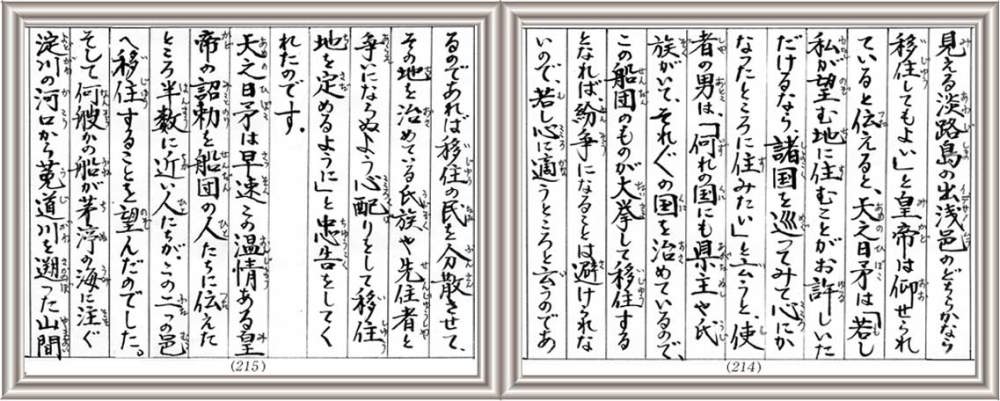 見える淡路島の出浅邑のどちらかなら
移住してもよい」と皇帝は仰せられ
ていると伝えると、天之日矛は「若し
私が望む地に住むことがお許しいた
だけるなら、諸国を巡ってみて心にか
なったところに住みたい」と云うと、使
者の男は、「何れの国にも県主や氏
族がいて、それぞれの国を治めているので、
この船団のものが大挙して移住する
となれば紛争になることは避けられな
いので、若し心に適うところと云うのであ
(214)
るのであれば移住の民を分散させて、
その地を治めている氏族や先住者と
争いにならぬよう心配りをして移住
地を定めるように」と忠告をしてく
れたのです。
天之日矛は早速この温情ある皇
帝の詔勅を船団の人たちに伝えた
ところ半数に近い人たちが、この二つの邑
へ移住することを望んだのでした。
そして何艘かの船が茅渟の海に注ぐ
淀川の河口から菟道川を遡った山間
(215)